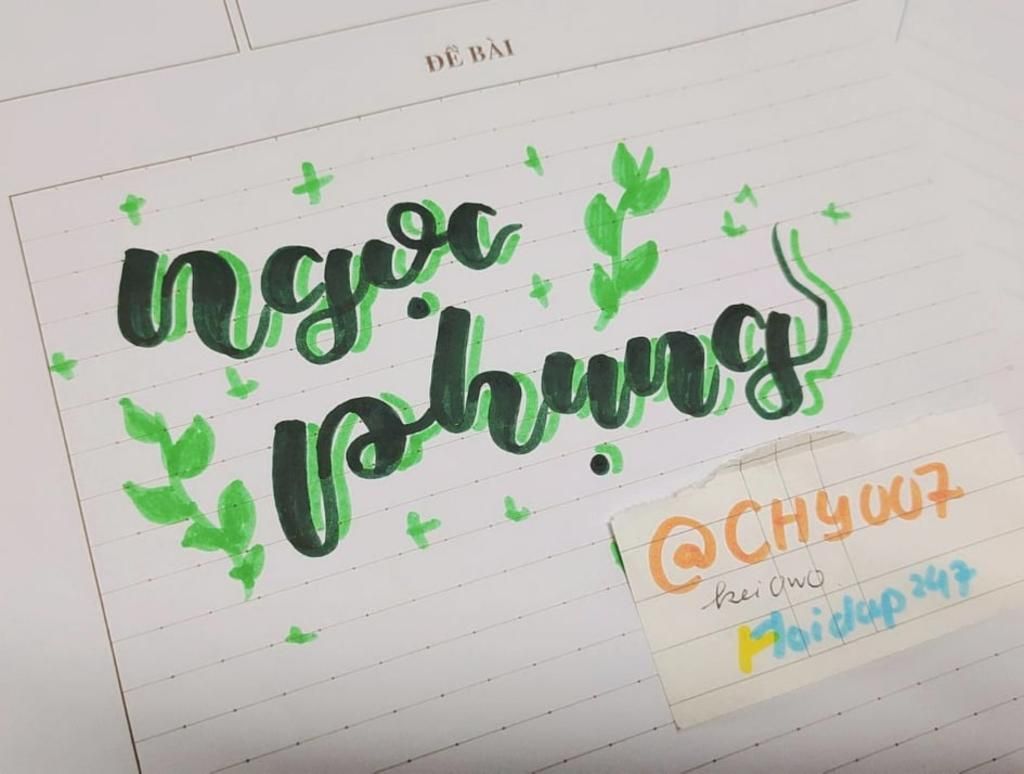 ĐỀ BÀI
ngọc
phụng
@CHY007
keiowo
Hoidap247